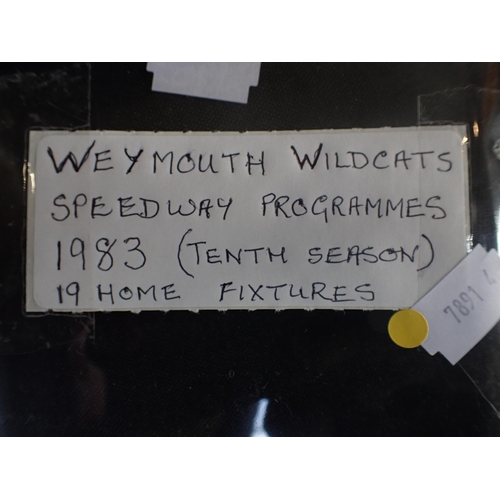 WEYMOUTH WILDCATS
SPEEDWAY PROGRAMMES
1983 (TENTH SEASON)
19 HOME FIXTURES
7891 4